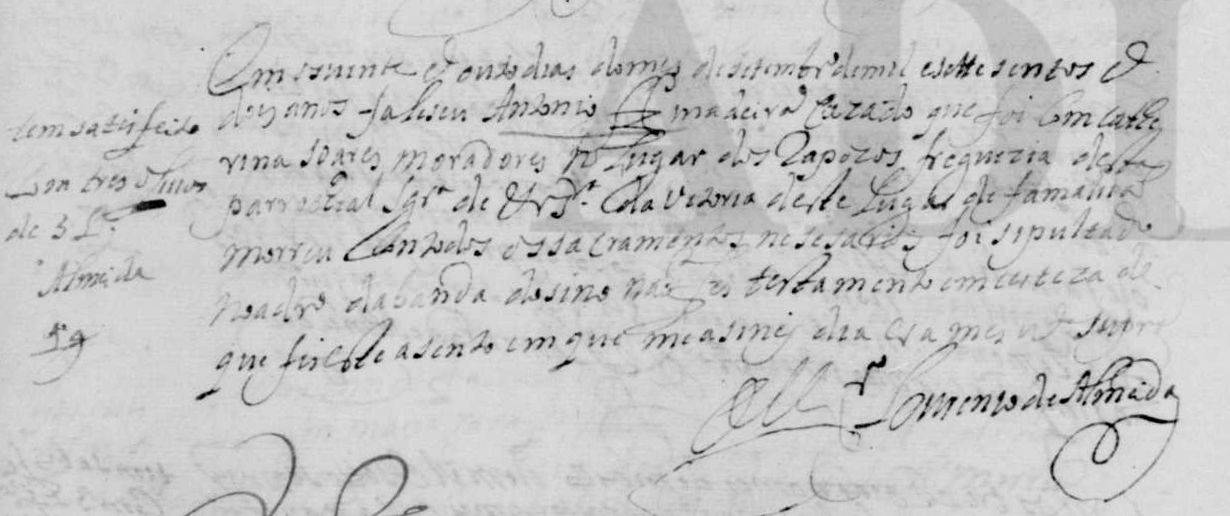 Em os vinte E outo dias do mes de setembro de mil e sette sentos E
dois anos faleseu Antonio Frz madeira Cazado que foi Com Cathe
rina soares moradores no Lugar dos Rapozos freguezia desta
parrochial Igrª de N. Srª da Vitoria deste Lugar de famalicaõ
morreu Com todos os sacramentos nesesarios foi sipultado
no adro da banda do sino naõ fes testamento em certeza de
que fis este asento em que me asinei dia era mes ut supra
Lourenço de Almeida
tem satisfeito
Com tres oficios
de 3 L.
Almeida